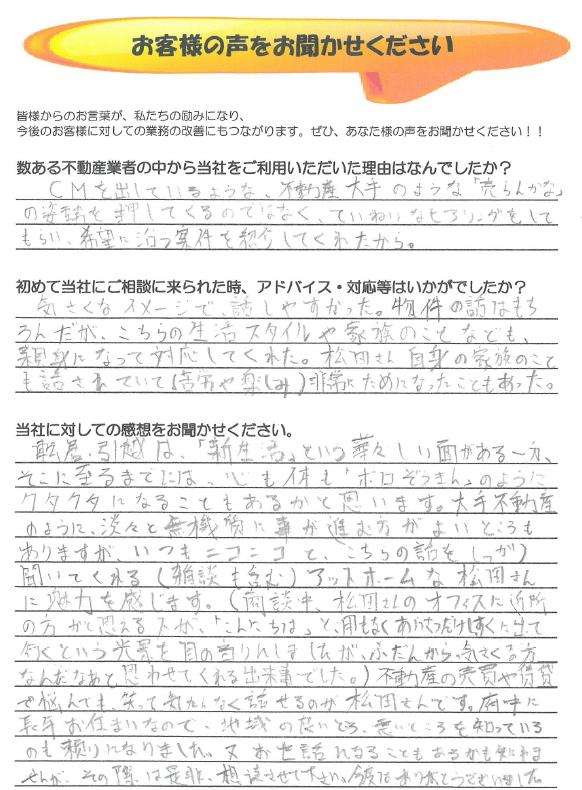 お客様の声をお聞かせください
皆様からのお言葉が、私たちの励みになり、
今後のお客様に対しての業務の改善にもつながります。ぜひ、あなた様の声をお聞かせください！！
数ある不動産業者の中から当社をご利用いただいた理由はなんでしたか？
CMを出しているような、不動産大手のような「売らんがな」
の姿勢を押してくるのではなく、ていねいなヒアリングをして
もらい、希望に沿う案件を紹介してくれたから。
初めて当社にご相談に来られた時、アドバイス・対応等はいかがでしたか？
気さくなイメージで、話しやすかった。物件の話はもち
ろんだが、こちらの生活スタイルや家族のことなども、
親身になって対応してくれた。松岡さん自身の家族のこと
も話されていて（苦労や楽しみ）非常にためになったこともあった。
当社に対しての感想をお聞かせください。
転居・引越は、「新生活」という華々しい面がある一方、
そこに至るまでには、心も体も「ボロぞうきん」のように
クタクタになることもあるかと思います。大手不動産
のように、淡々と無機質に事が進む方がよいところも
ありますが、いつもニコニコと、こちらの話をしっかり
聞いてくれる（雑談も含む）アットホームな松岡さん
に魅力を感じます。（商談中、松岡さんのオフィスに近所
の方かと思える人が、「こんにちは」と、用もなくあいさつだけしに出て
行くという光景を目の当りにしましたが、ふだんから気さくな方
なんだなあと思わせてくれる出来事でした。）不動産の売買や賃貸
で悩んでも、笑って気さくなく話せるのが松岡さんです。府中に
長年お住まいなので、地域の良いところ、悪いところを知っている
のも頼りになりました。又お世話になることもあるかも知れま
せんが、その際は是非、相談させて下さい。今回はありがとうございました。